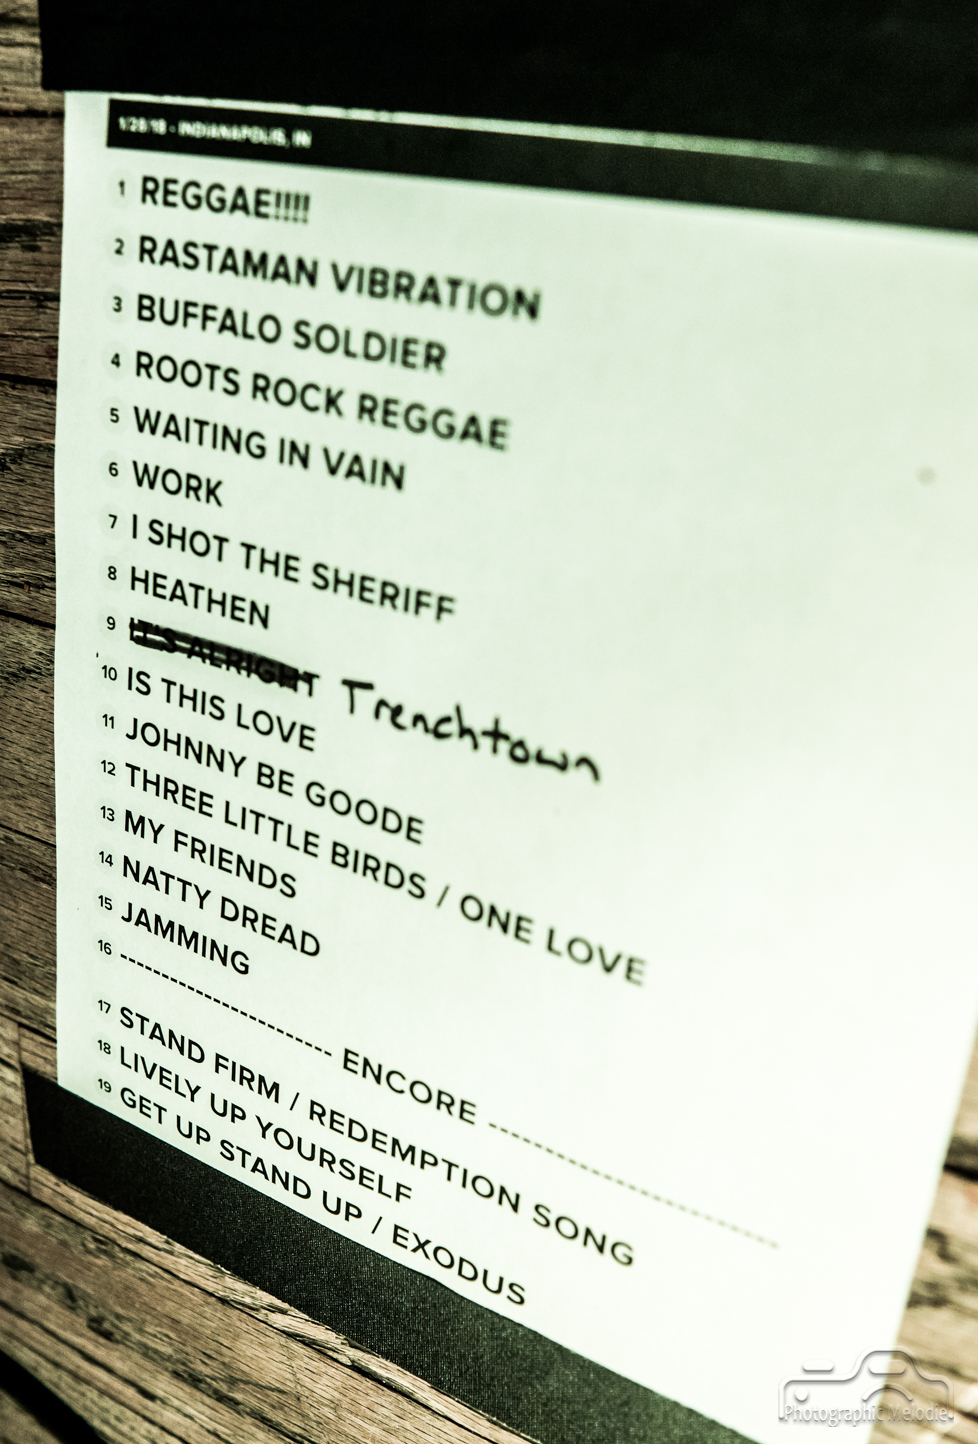 1/28/18 - INDIANAPOLIS, IN
1 REGGAE!!!!
2 RASTAMAN VIBRATION
3 BUFFALO SOLDIER
4 ROOTS ROCK REGGAE
5 WAITING IN VAIN
6 WORK
7 I SHOT THE SHERIFF
8 HEATHEN
9 IT'S ALRIGHT Trenchtown
10 IS THIS LOVE
11 JOHNNY BE GOODE
12 THREE LITTLE BIRDS / ONE LOVE
13 MY FRIENDS
14 NATTY DREAD
15 JAMMING
16 -------------------- ENCORE --------------------
17 STAND FIRM / REDEMPTION SONG
18 LIVELY UP YOURSELF
19 GET UP STAND UP / EXODUS
Photographic Melodie